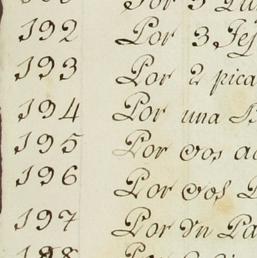 Por 3
192 Por 3 Tej
193 Por 2 pica
194 Por una
195 Por dos
196 Por dos
197 Por Vn Pa
198 Por